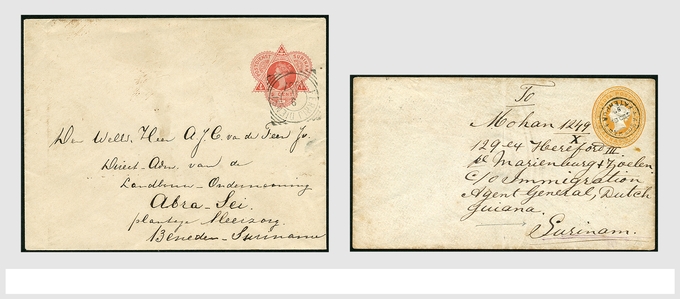 Den Weld. Heer A.J.C. van de Seer Jr.
Direct-Adm. van de
Landbouw-Onderneming
Abra-Sei.
plantage Meerzorg.
Beneden-Suriname
SURINAME
To
Mohan 1249
x
129 ex Hereford III
pl Marienburg & Zoelen
c/o Immigration
Agent General, Dutch
Guiana.
Surinam.